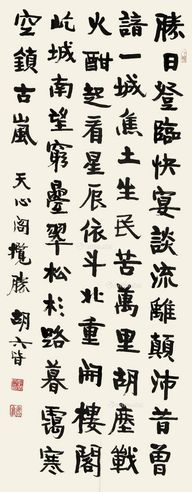 勝日登臨快宴談流離顛沛昔曾
諳一城焦土生民苦萬里胡塵戰
火酣起看星辰依斗北重開樓閣
屼城南望窮疊翠松杉路暮靄寒
空鎖古嵐 天心阁攬勝 胡六皆